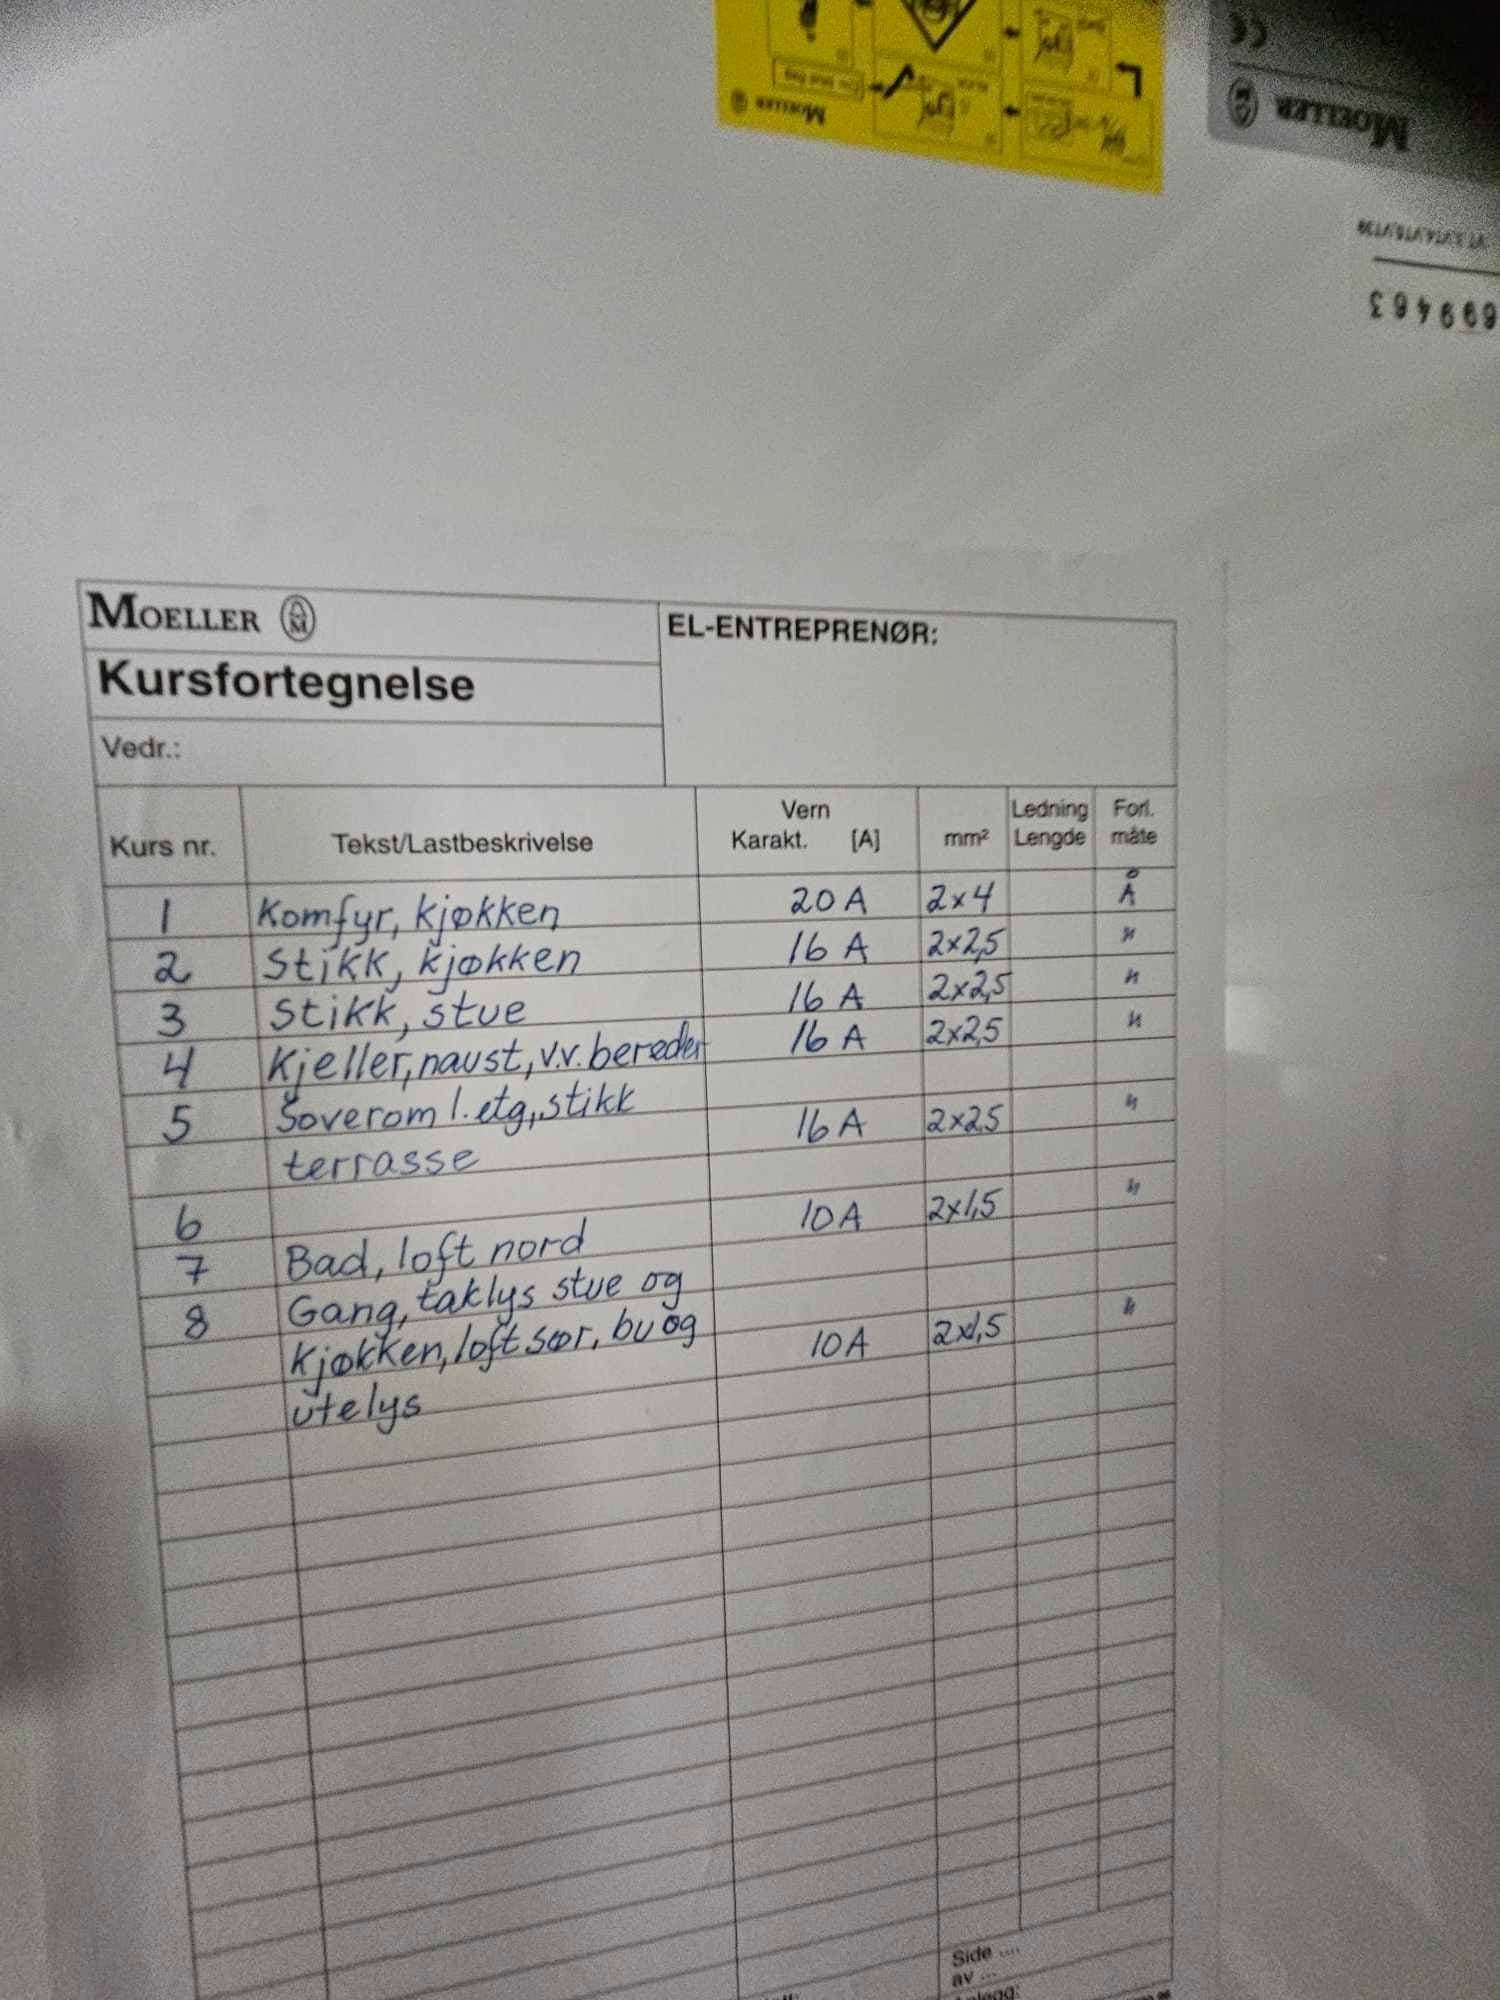 MOELLER
MOELLER
699463
MOELLER
Kursfortegnelse
Vedr.:
EL-ENTREPRENØR:
Kurs nr. Tekst/Lastbeskrivelse Vern Karakt. [A] mm² Ledning Lengde Forl. måte
1 Komfyr, kjøkken 20 A 2x4 Å
2 Stikk, kjøkken 16 A 2x2,5 "
3 Stikk, stue 16 A 2x2,5 "
4 Kjeller, naust, v.v. bereder 16 A 2x2,5 "
5 Soverom 1. etg, stikk 16 A 2x2,5 "
terrasse
6
7 Bad, loft nord 10 A 2x1,5 "
8 Gang, taklys stue og
kjøkken, loft sør, bu og 10 A 2x1,5 "
utelys
Side ....
av ...